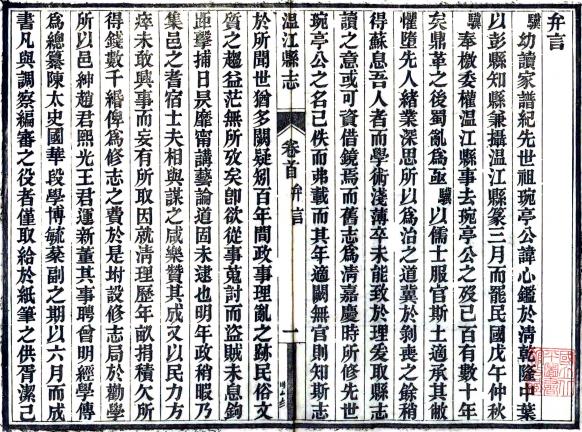 弁言
驥幼讀家譜紀先世祖琬亭公諱心鑑於清乾隆中葉
以彭縣知縣兼攝温江縣篆三月而罷民國戊午仲秋
奉檄委權温江縣事去琬亭公之歿已百有數十年
矣鼎革之後蜀亂為亟驥以儒士服官斯土適承其敝
懼墮先人緒業深思所以為治之道冀於剝喪之餘稍
得蘇息吾人者而學術淺薄卒未能致於理爰取縣志
讀之意或可資借鏡焉而舊志為清嘉慶時所修先世
琬亭公之名已佚而弗載而其年適闕無官則知斯志
温江縣志
卷首
弁言
一
於所聞世猶多闕疑矧百年間政事理亂之跡民俗文
質之趨益茫無所攷矣卽欲從事蒐討而盜賊未息鉤
距擊捕日昃靡甯講藝論道固未遑也明年政稍暇乃
集邑之耆宿士夫相與謀之咸樂贊其成又以民力方
瘁未敢興事而妄有所取因就清理歷年畝捐積欠所
得錢數千緡俾為修志之費於是坿設修志局於勸學
所以邑紳趙君熙光王君運新董其事聘曾明經學傳
為總纂陳太史國華段學博毓棻副之期以六月而成
書凡與調察編審之役者僅取給於紙筆之供胥潔己